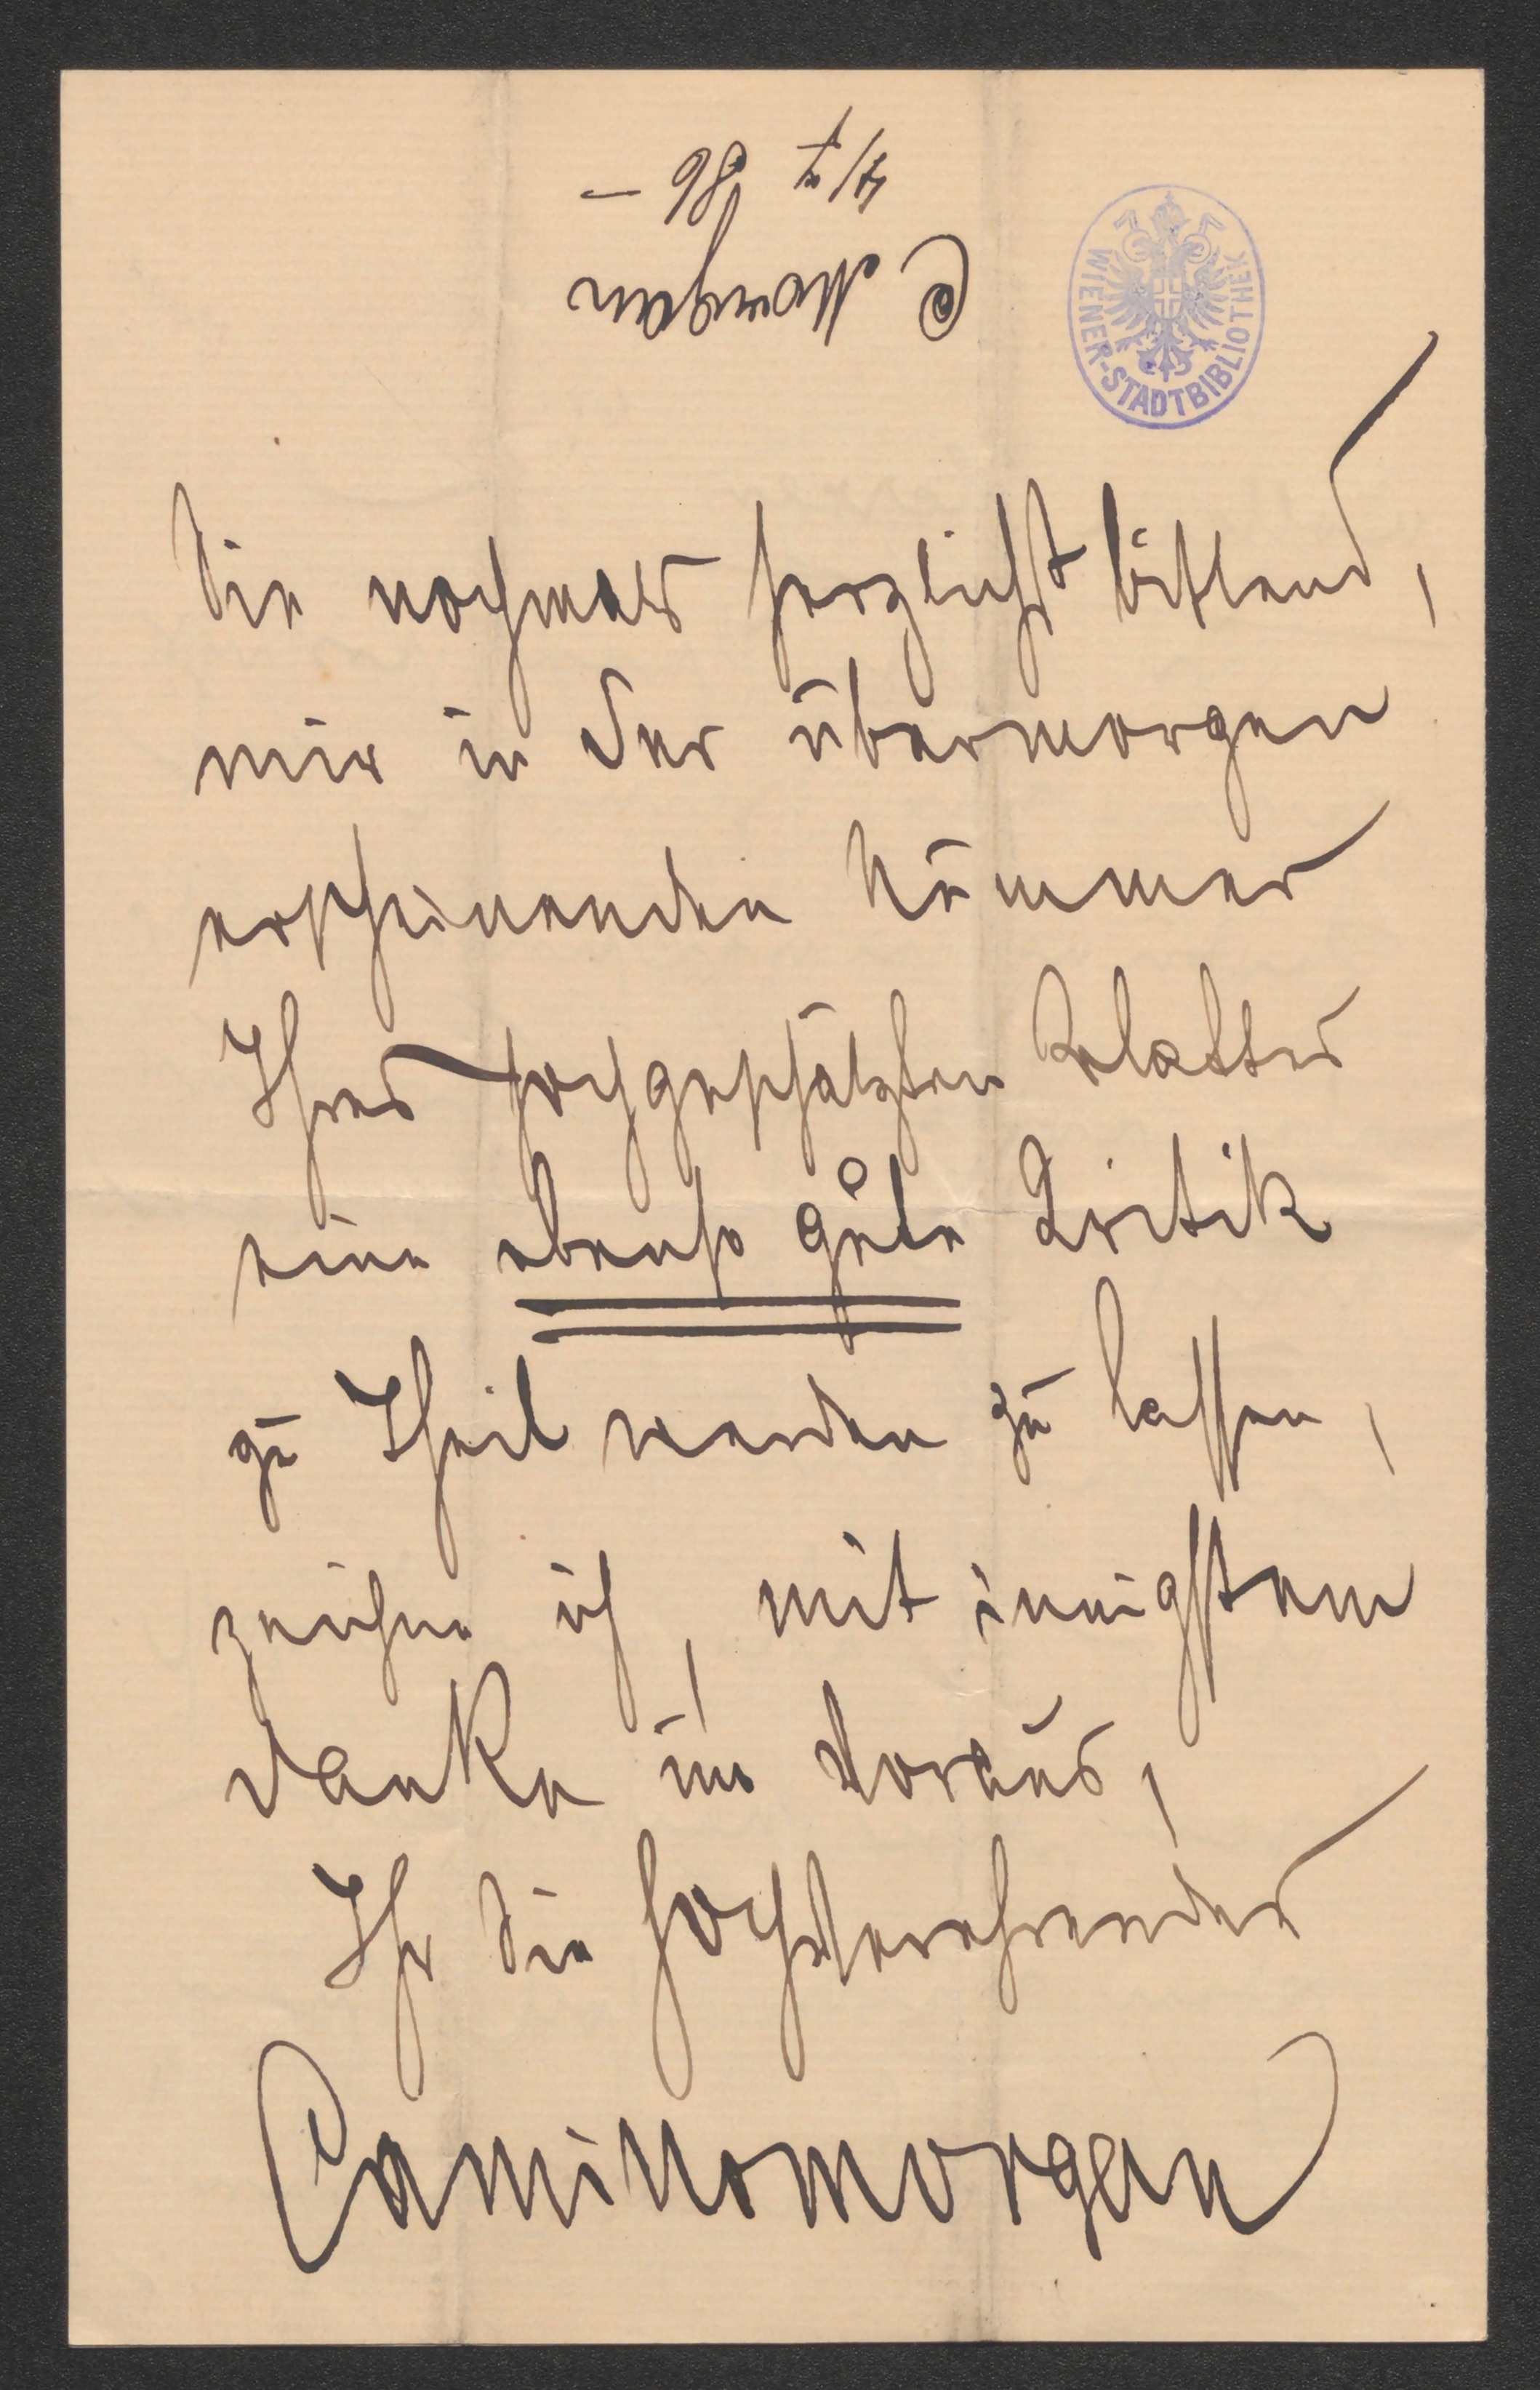 C Morgan
4/7 86 –
WIENER-STADTBIBLIOTHEK
Sie nochmals herzlichst bittend,
mir in der übermorgen
erscheinenden Nummer
Ihres hochgeschätzten Blattes
eine ebenso gute Kritik
zu Theil werden zu lassen,
zeichne ich, mit innigstem
Danke im Voraus,
Ihr Sie hochverehrender
Camillo Morgan